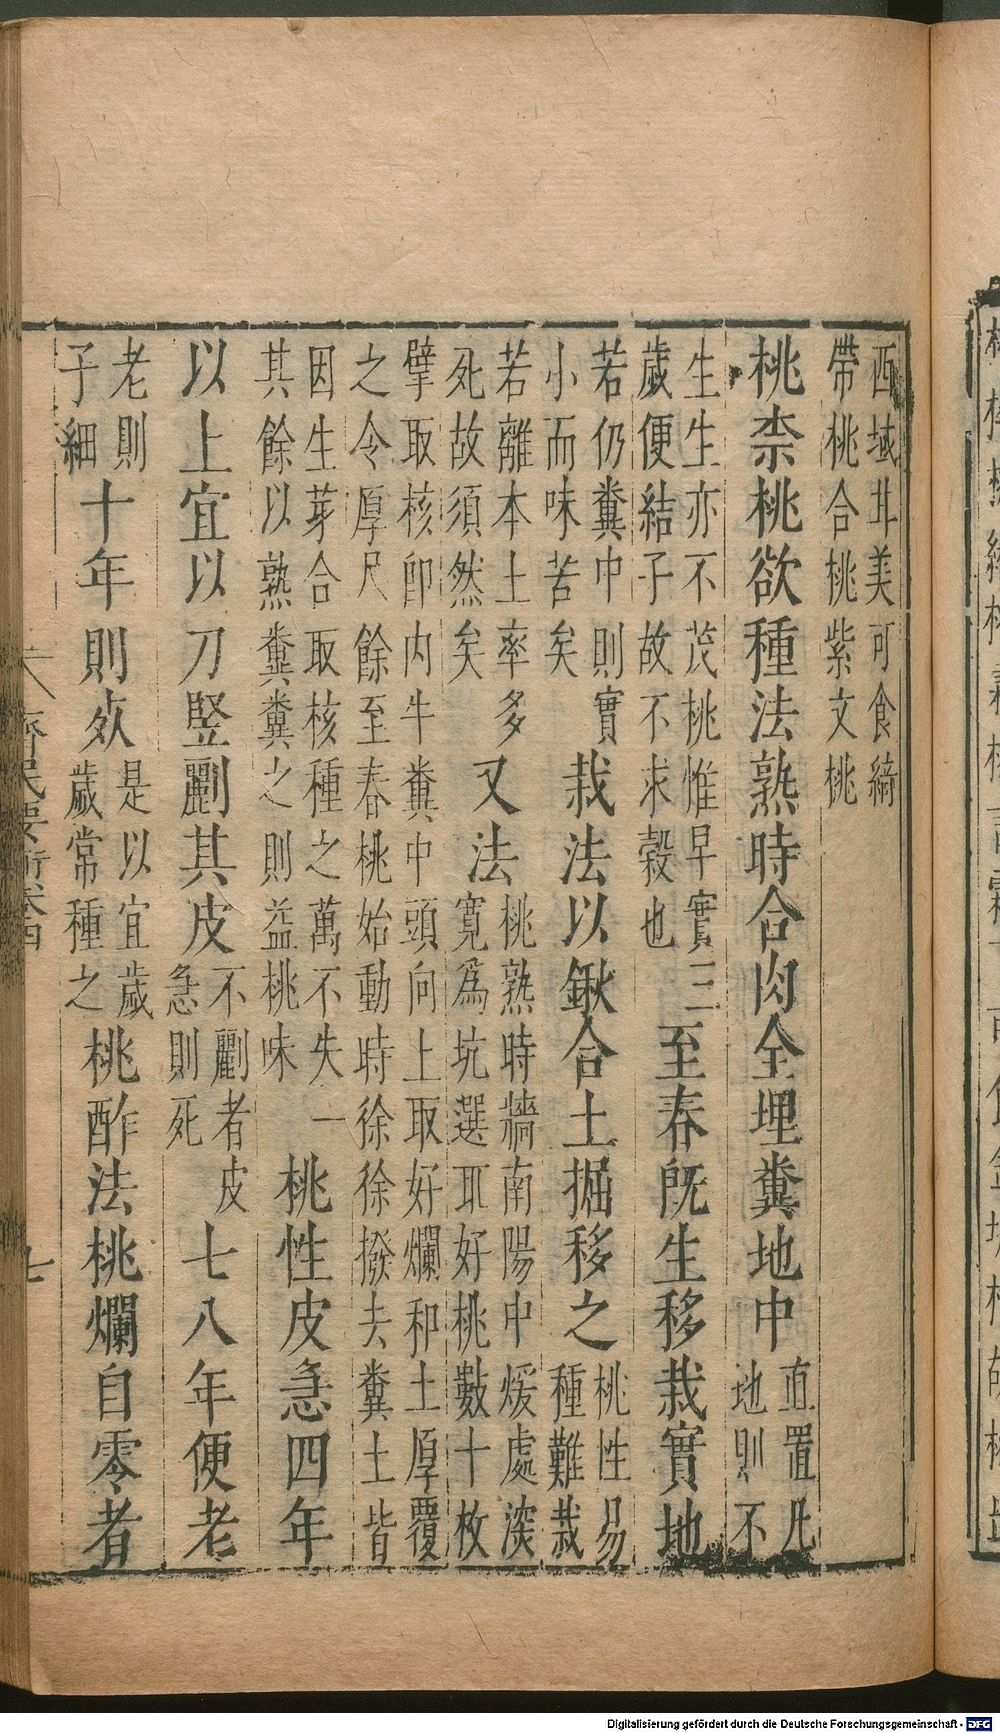 西域北美可食綺
帶桃合桃紫文桃
桃柰桃欲種法熟時合肉全埋糞地中
直置凡
地則不
生生亦不茂桃惟早實三
歲便結子故不求穀也
至春旣生移栽實地
若仍糞中則實
小而味苦矣
栽法以鍬合土掘移之
桃性易
種難栽
若離本土率多
死故須然矣
又法
桃熟時牆南陽中煖處深
寬爲坑選取好桃數十枚
擘取核卽內牛糞中頭向上取好爛和土厚覆
之令厚尺餘至春桃始動時徐徐撥去糞土皆
因生芽合取核種之萬不失一
其餘以熟糞糞之則益桃味
桃性皮急四年
以上宜以刀竪劙其皮
不劙者皮
急則死
七八年便老
老則
子細
十年則死
是以宜歲
歲常種之
桃酢法桃爛自零者
齊民要術卷四
七
Digitalisierung gefördert durch die Deutsche Forschungsgemeinschaft - DFG